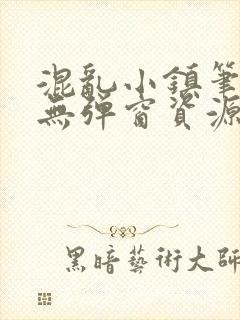 混亂小鎮筆
無彈窗資源
黑暗藝術大師